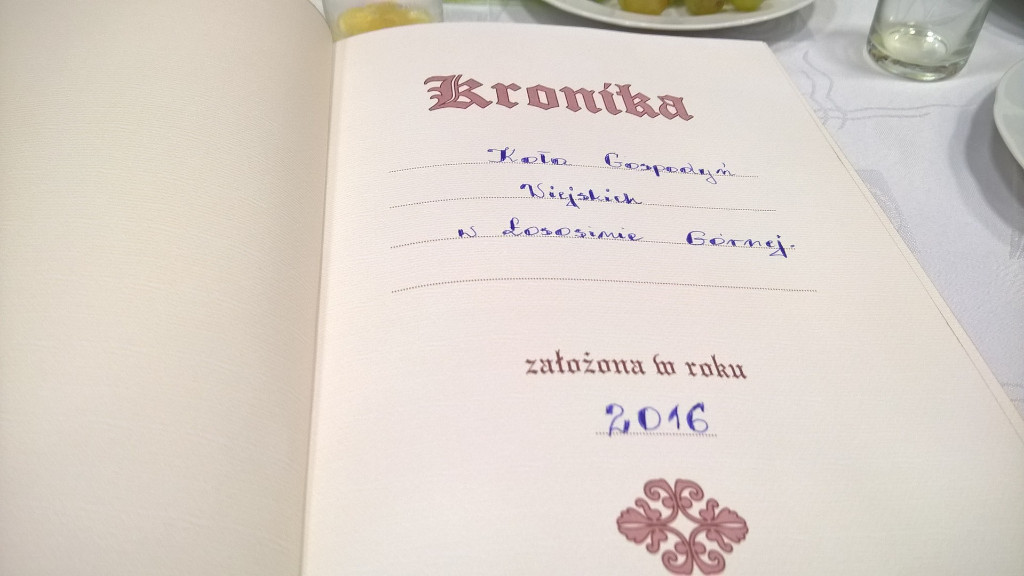 Kronika
Koło Gospodyń
Wiejskich
w Łososinie Górnej.
założona w roku
2016